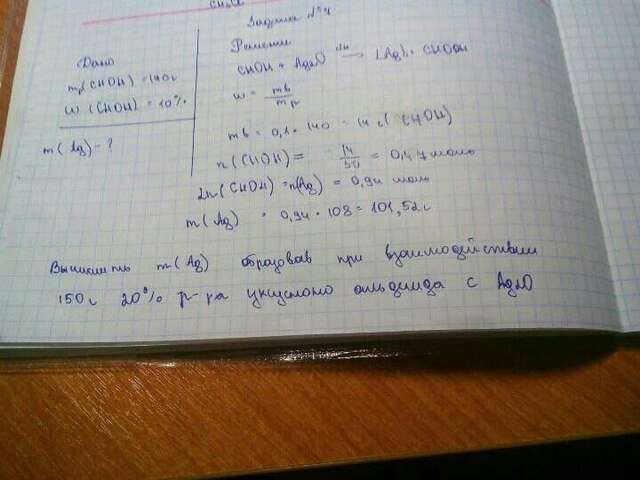 Задача №4
Дано
Решение
mр(CHOH) = 140г
CHOH + Ag2O → 2Ag↓ + CHOOH
w (CHOH) = 10%
w = mв/mр
m(Ag) - ?
mв = 0,1 • 140 = 14 г (CHOH)
n(CHOH) = 14/30 = 0,47 моль
2n(CHOH) = n(Ag) = 0,94 моль
m(Ag) = 0,94 • 108 = 101,52 г
Вычислить m(Ag) образовав при взаимодействии
150г 20% р-ра уксусного альдегида с Ag2O